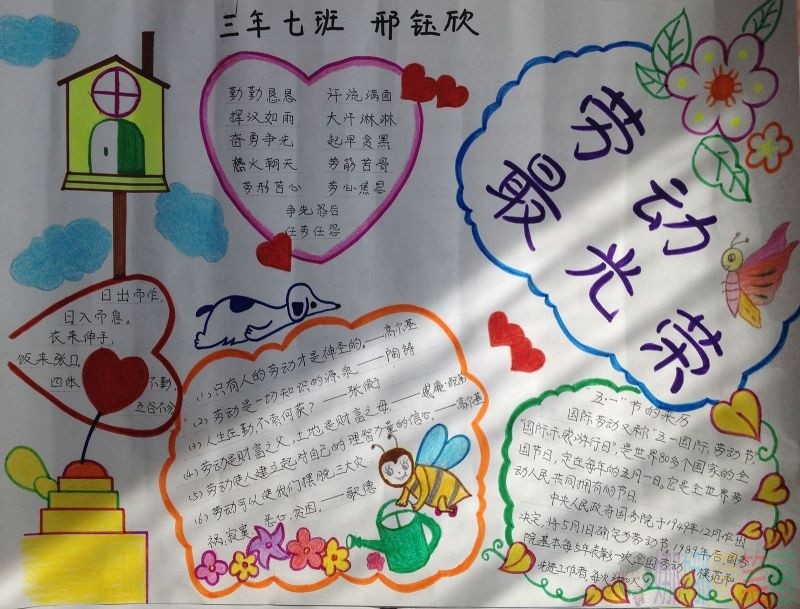 三年七班 邢钰欣
勤勤恳恳 汗流满面
挥汉如雨 大汗淋淋
奋勇争先 起早贪黑
热火朝天 劳筋苦骨
劳形苦心 劳心焦思
争先恐后
任劳任怨
劳动
最光荣
日出而作,
日入而息。
衣来伸手,
饭来张口。
四体 不勤,
五谷不分
(1)只有人的劳动才是神圣的。——高尔基
(2)劳动是一切知识的源泉。——陶铸
(3)人生在勤,不索何获?——张衡
(4)劳动是财富之父,土地是财富之母。——威廉·配第
(5)劳动使人建立起对自己的理智力量的信心。——高尔基
(6)劳动可以使我们摆脱三大灾
祸:寂寞、恶心、贫困。——歌德
五·一"节的来历
国际劳动义称"五一国际劳动节
"国际示威游行日"是世界80多个国家的全
国节日。定在每年的五月一日。它是全世界劳
动人民共同拥有的节日
中央人民政府国务院于1949年12月作出
决定,将5月1日确定为劳动节。1989年后,国务
院基本每5年表彰一次全国劳动模范和
先进工作者,每次